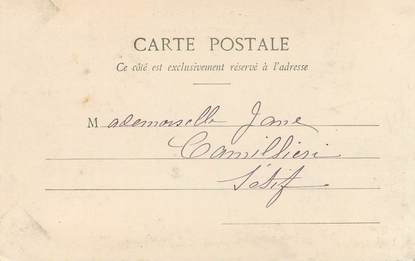 CARTE POSTALE
Ce côté est exclusivement réservé à l'adresse
Mademoiselle Jane
Camillieri
Sétif